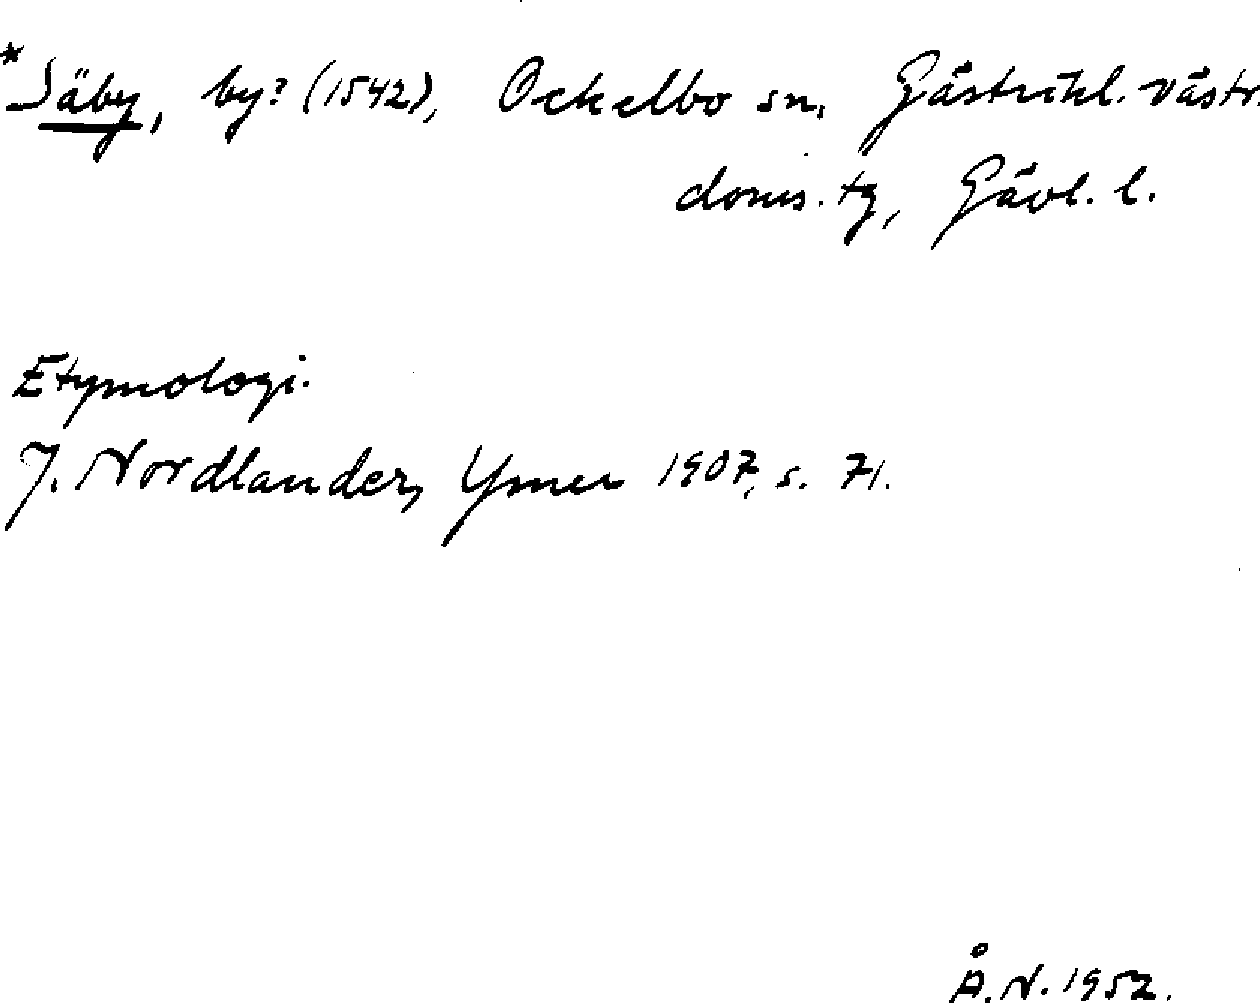 *Säby, by? (1542), Ockelbo sn, Gästrikl. västr
doms. tg, Gävl. l.
Etymologi.
J. Nordlander, Ymer 1907, s. 71.
Å. N. 1952.